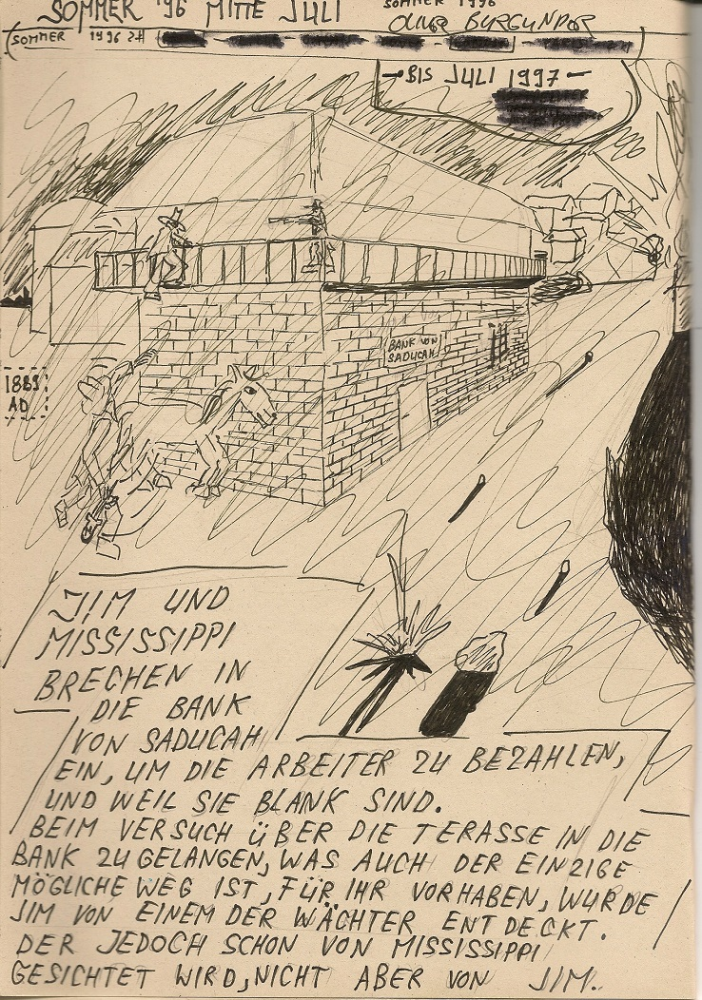 SOMMER '96 MITTE JULI
SOMMER 1996
OLIVER BURGUNDER
SOMMER 1996
BIS JULI 1997
BANK VON
SADUCAH
1889
AD
JIM UND
MISSISSIPPI
BRECHEN IN
DIE BANK
VON SADUCAH
EIN, UM DIE ARBEITER ZU BEZAHLEN,
UND WEIL SIE BLANK SIND.
BEIM VERSUCH ÜBER DIE TERASSE IN DIE
BANK ZU GELANGEN, WAS AUCH DER EINZIGE
MÖGLICHE WEG IST, FÜR IHR VORHABEN, WURDE
JIM VON EINEM DER WÄCHTER ENTDECKT.
DER JEDOCH SCHON VON MISSISSIPPI
GESICHTET WIRD, NICHT ABER VON JIM.